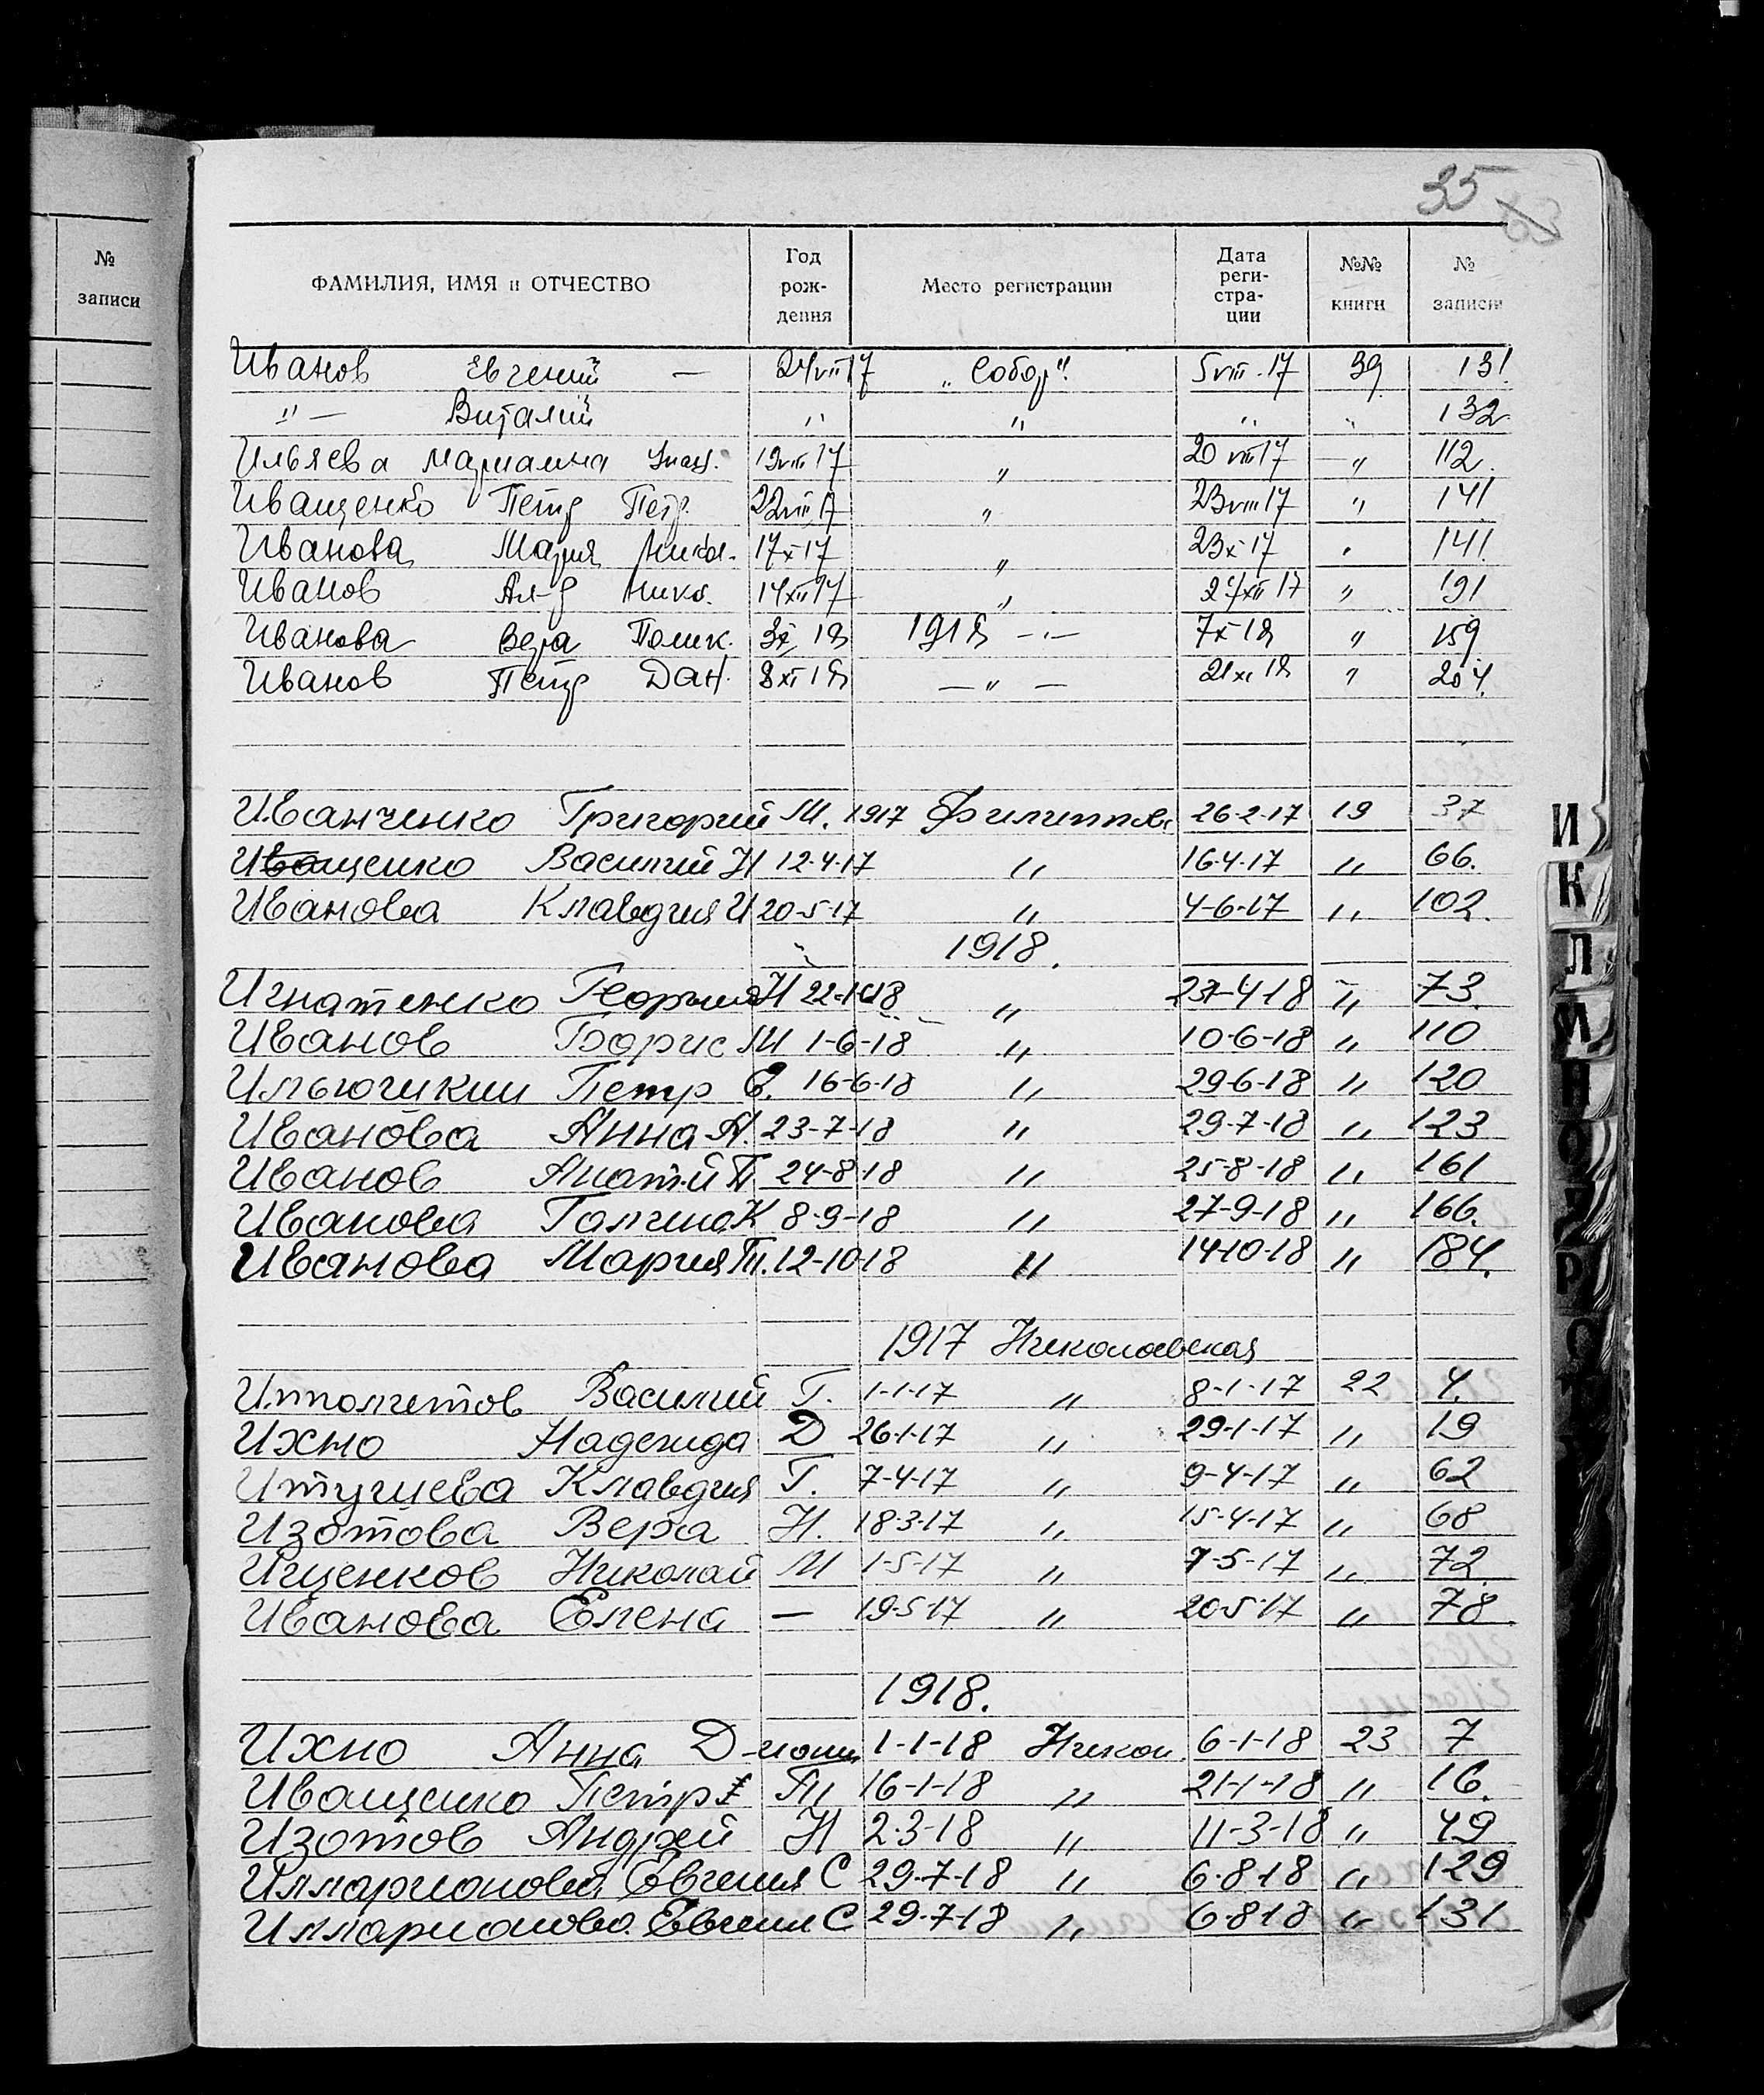 35 63
№ записи
ФАМИЛИЯ, ИМЯ и ОТЧЕСТВО Год рож- дения Место регистрации Дата реги- стра- ции №№ книги № записи
Иванов Евгений — 24 VII 17 „Собор“ 5 VIII 17 39 131
"— Виталий " " " " 132
Ильяева Марианна 19 VIII 17 " 20 VIII 17 —" 112
Иващенко Петр Петр. 22 VIII 17 " 23 VIII 17 " 141
Иванова Мария Никол. 17 X 17 " 23 X 17 " 141
Иванов Ал-д Нико. 14 XII 17 " 27 XII 17 " 191
Иванова Вера Полик. 3 X 18 1918 —"— 7 X 18 " 159
Иванов Петр Дан. 8 XI 18 —"— 21 XI 18 " 204
Иванченко Григорий М. 1917 Филиппов 26-2-17 19 37
Иващенко Василий Н 12-4-17 " 16-4-17 " 66.
Иванова Клавдия И 20-5-17 " 4-6-17 " 102.
1918.
Игнатенко Георгий Н " 23-4-18 " 73
Иванов Борис М 1-6-18 " 10-6-18 " 110
Ильючикии Петр Е. 16-6-18 " 29-6-18 " 120
Иванова Анна А. 23-7-18 " 29-7-18 " 123
Иванов Анат-й П 24-8-18 " 25-8-18 " 161
Иванова Галина К 8-9-18 " 27-9-18 " 166.
Иванова Мария П. 12-10-18 " 14-10-18 " 184.
1917 Николаевская
Ипполитов Василий Г. 1-1-17 " 8-1-17 22 4.
Ихно Надежда Д 26-1-17 " 29-1-17 " 19
Клавдия Г. 7-4-17 " 9-4-17 " 62
Изотова Вера Н. 18-3-17 " 15-4-17 " 68
Ищенков Николай М 1-5-17 " 7-5-17 " 72
Иванова Елена — 19-5-17 " 20-5-17 " 78
1918.
Ихно Анна Д 1-1-18 Никол. 6-1-18 23 7
Иващенко Петр П 16-1-18 " 21-1-18 " 16.
Изотов Андрей Н 2-3-18 " 11-3-18 " 49
Илларионова Евгения С 29-7-18 " 6-8-18 " 129
Илларионова Евгения С 29-7-18 " 6-8-18 " 131
И
К
Л
М
Н
О
П
Р
С